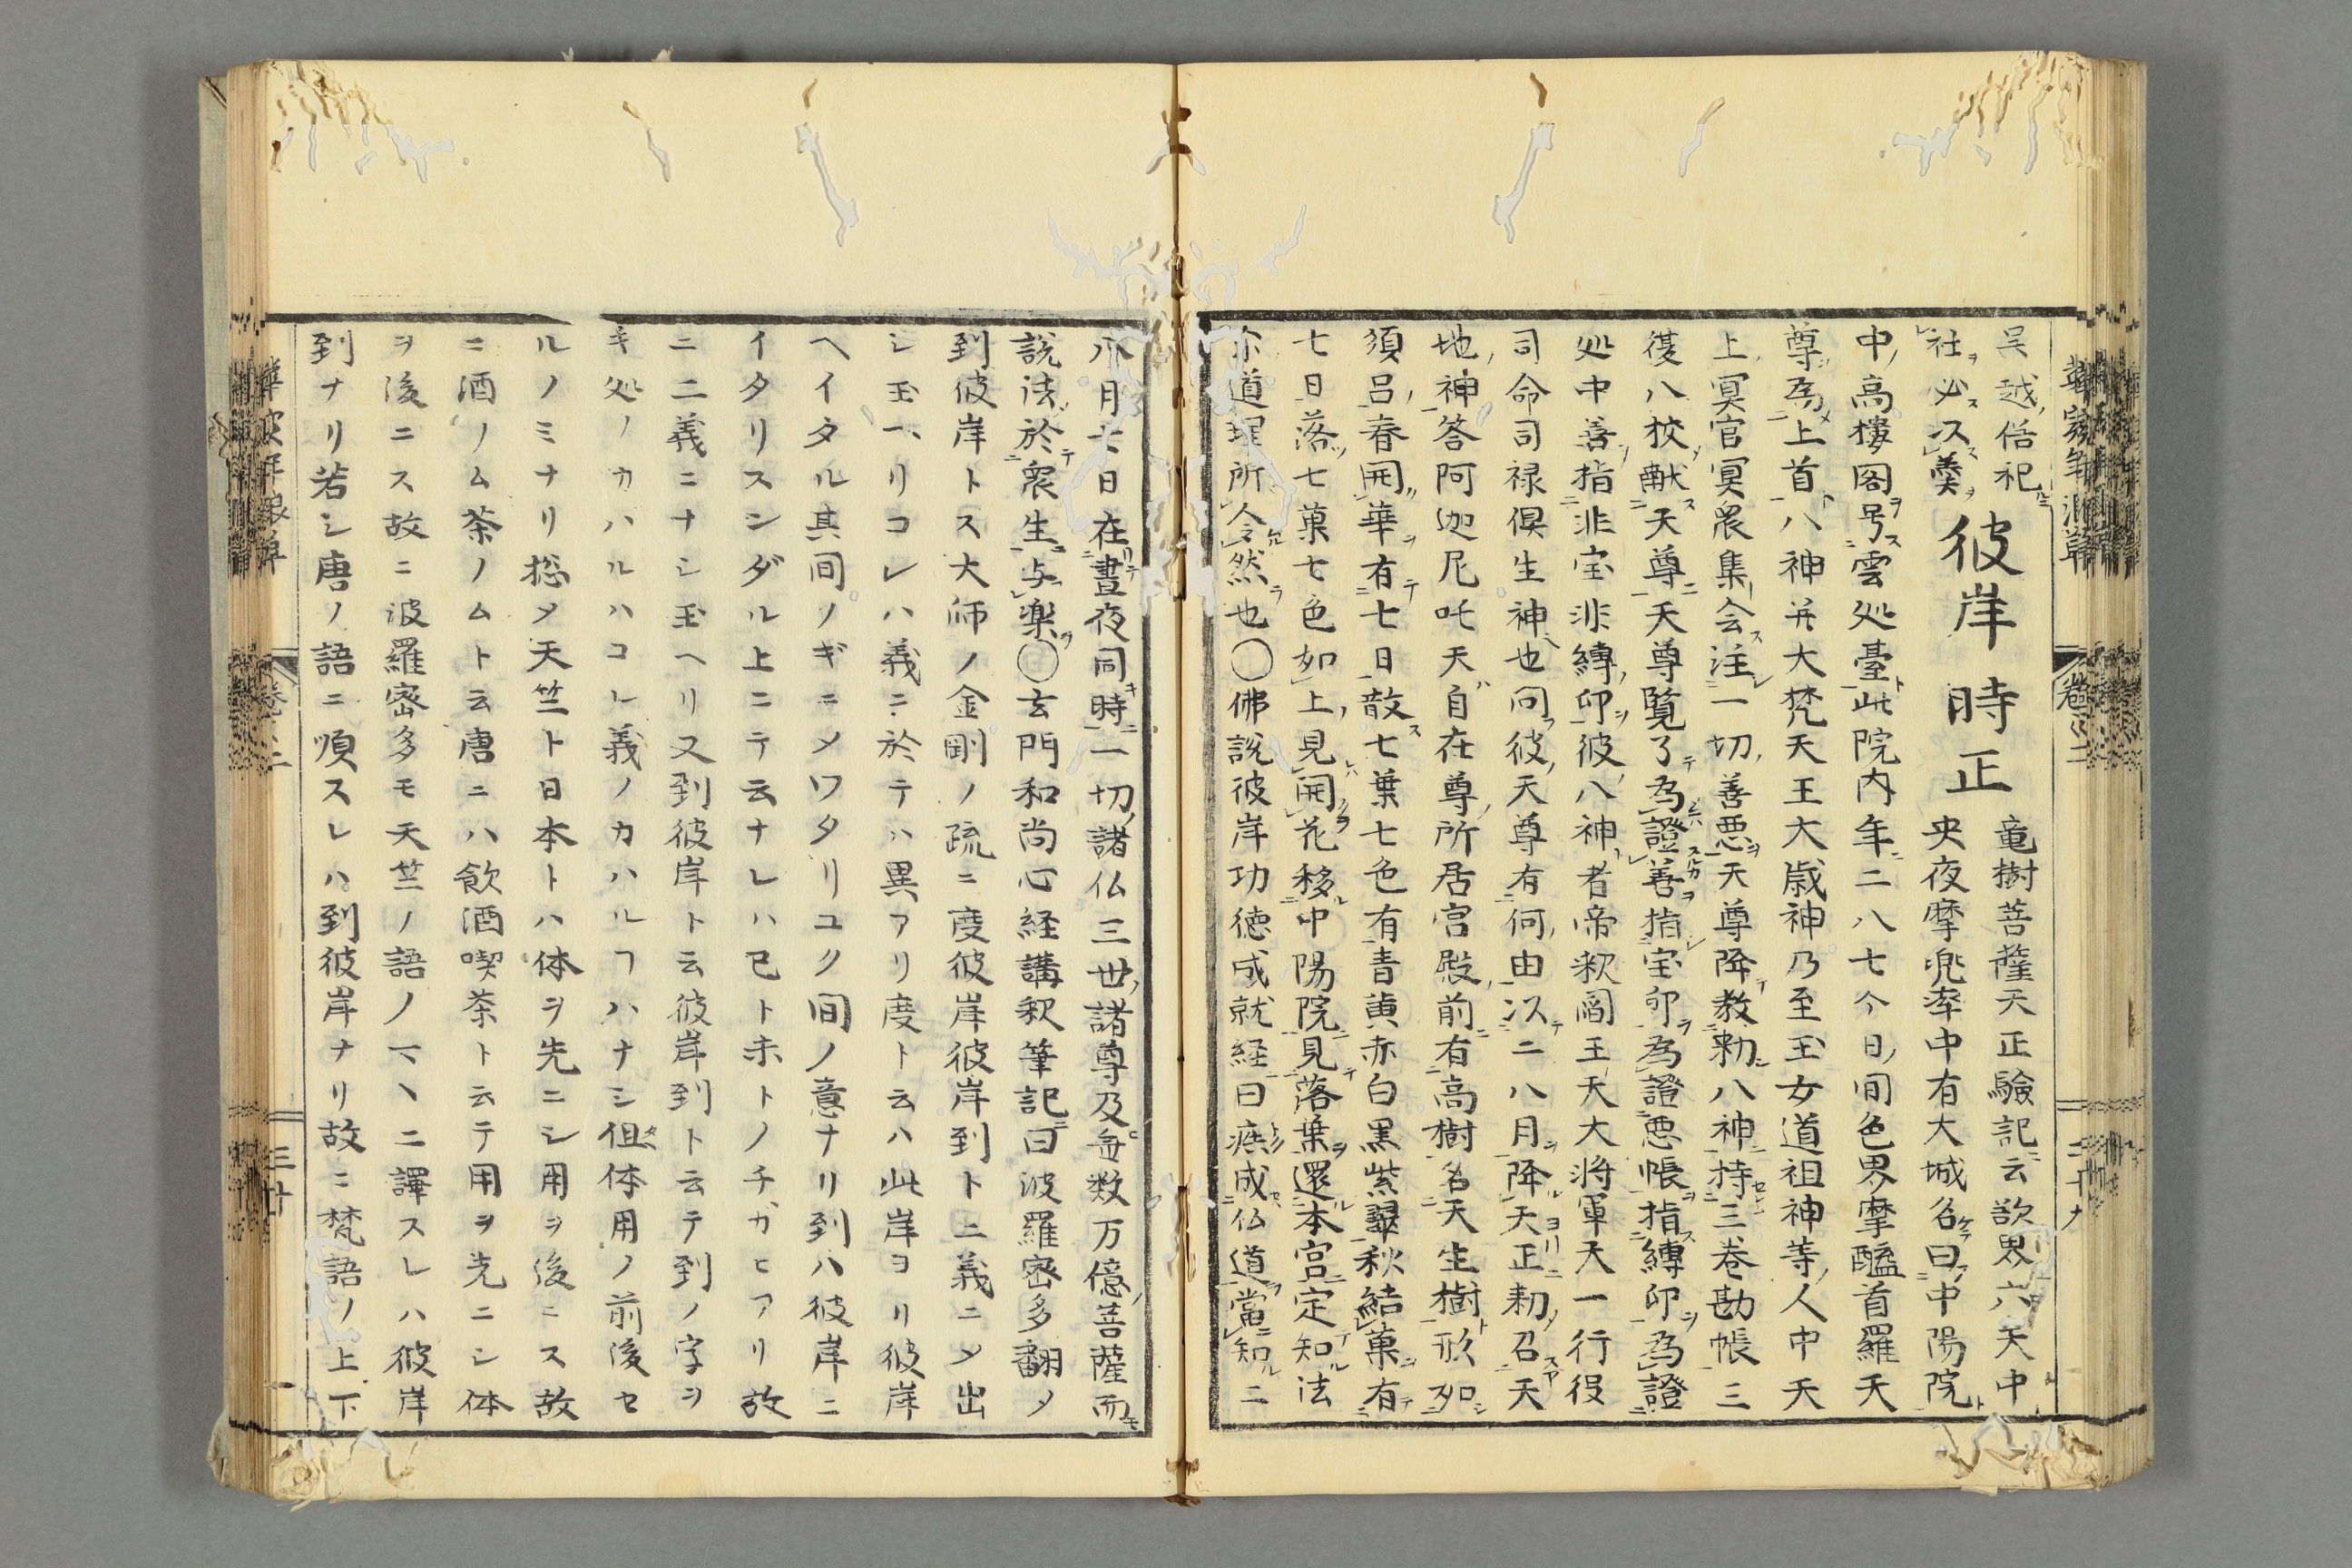 呉越俗祀
社必以羹
彼岸時正
竜樹菩薩天正驗記云欲界六天中
央夜摩兜率中有大城名曰中陽院
中高樓閣号雲処臺此院内年二八七今日間色界摩醯首羅天
尊為上首八神并大梵天王大歳神乃至玉女道祖神等人中天
上冥官冥衆集会注一切善悪天尊降教勅八神持三巻勘帳三
復八校献天尊天尊覧了為證善指宝印為證悪帳指縛印為證
処中善指非宝非縛印彼八神者帝釈閻王天大将軍天一行役
司命司禄倶生神也問彼天尊有何由以二八月降天正勅召天
地神答阿迦尼吒天自在尊所居宮殿前有高樹名天生樹形如
須呂春開華有七日散七葉七色有青黄赤白黒紫翠秋結菓有
七日落七菓七色如上見開花移中陽院見落葉還本宮定知法
尓道理所令然也〇佛説彼岸功徳成就経曰疾成仏道當知二
八月七日在晝夜同時一切諸仏三世諸尊及無数万億菩薩而
説法於衆生与楽〇玄門和尚心経講釈筆記曰波羅密多翻メ
到彼岸トス大師ノ金剛ノ疏ニ度彼岸彼岸到ト二義ニメ出
シ玉ヘリコレハ義ニ於テハ異アリ度ト云ハ此岸ヨリ彼岸
ヘイタル其間ノギニメワタリユク間ノ意ナリ到ハ彼岸ニ
イタリスンダル上ニテ云ナレハ已ト未トノチガヒアリ故
ニ二義ニナシ玉ヘリ又到彼岸ト云彼岸到ト云テ到ノ字ヲ
キ処ノカハルハコレ義ノカハルヿハナシ但体用ノ前後セ
ルノミナリ捴メ天竺ト日本トハ体ヲ先ニシ用ヲ後ニス故
ニ酒ノム茶ノムト云唐ニハ飲酒喫茶ト云テ用ヲ先ニシ体
ヲ後ニス故ニ波羅密多モ天竺ノ語ノマヽニ譯スレハ彼岸
到ナリ若シ唐ノ語ニ順スレハ到彼岸ナリ故ニ梵語ノ上下